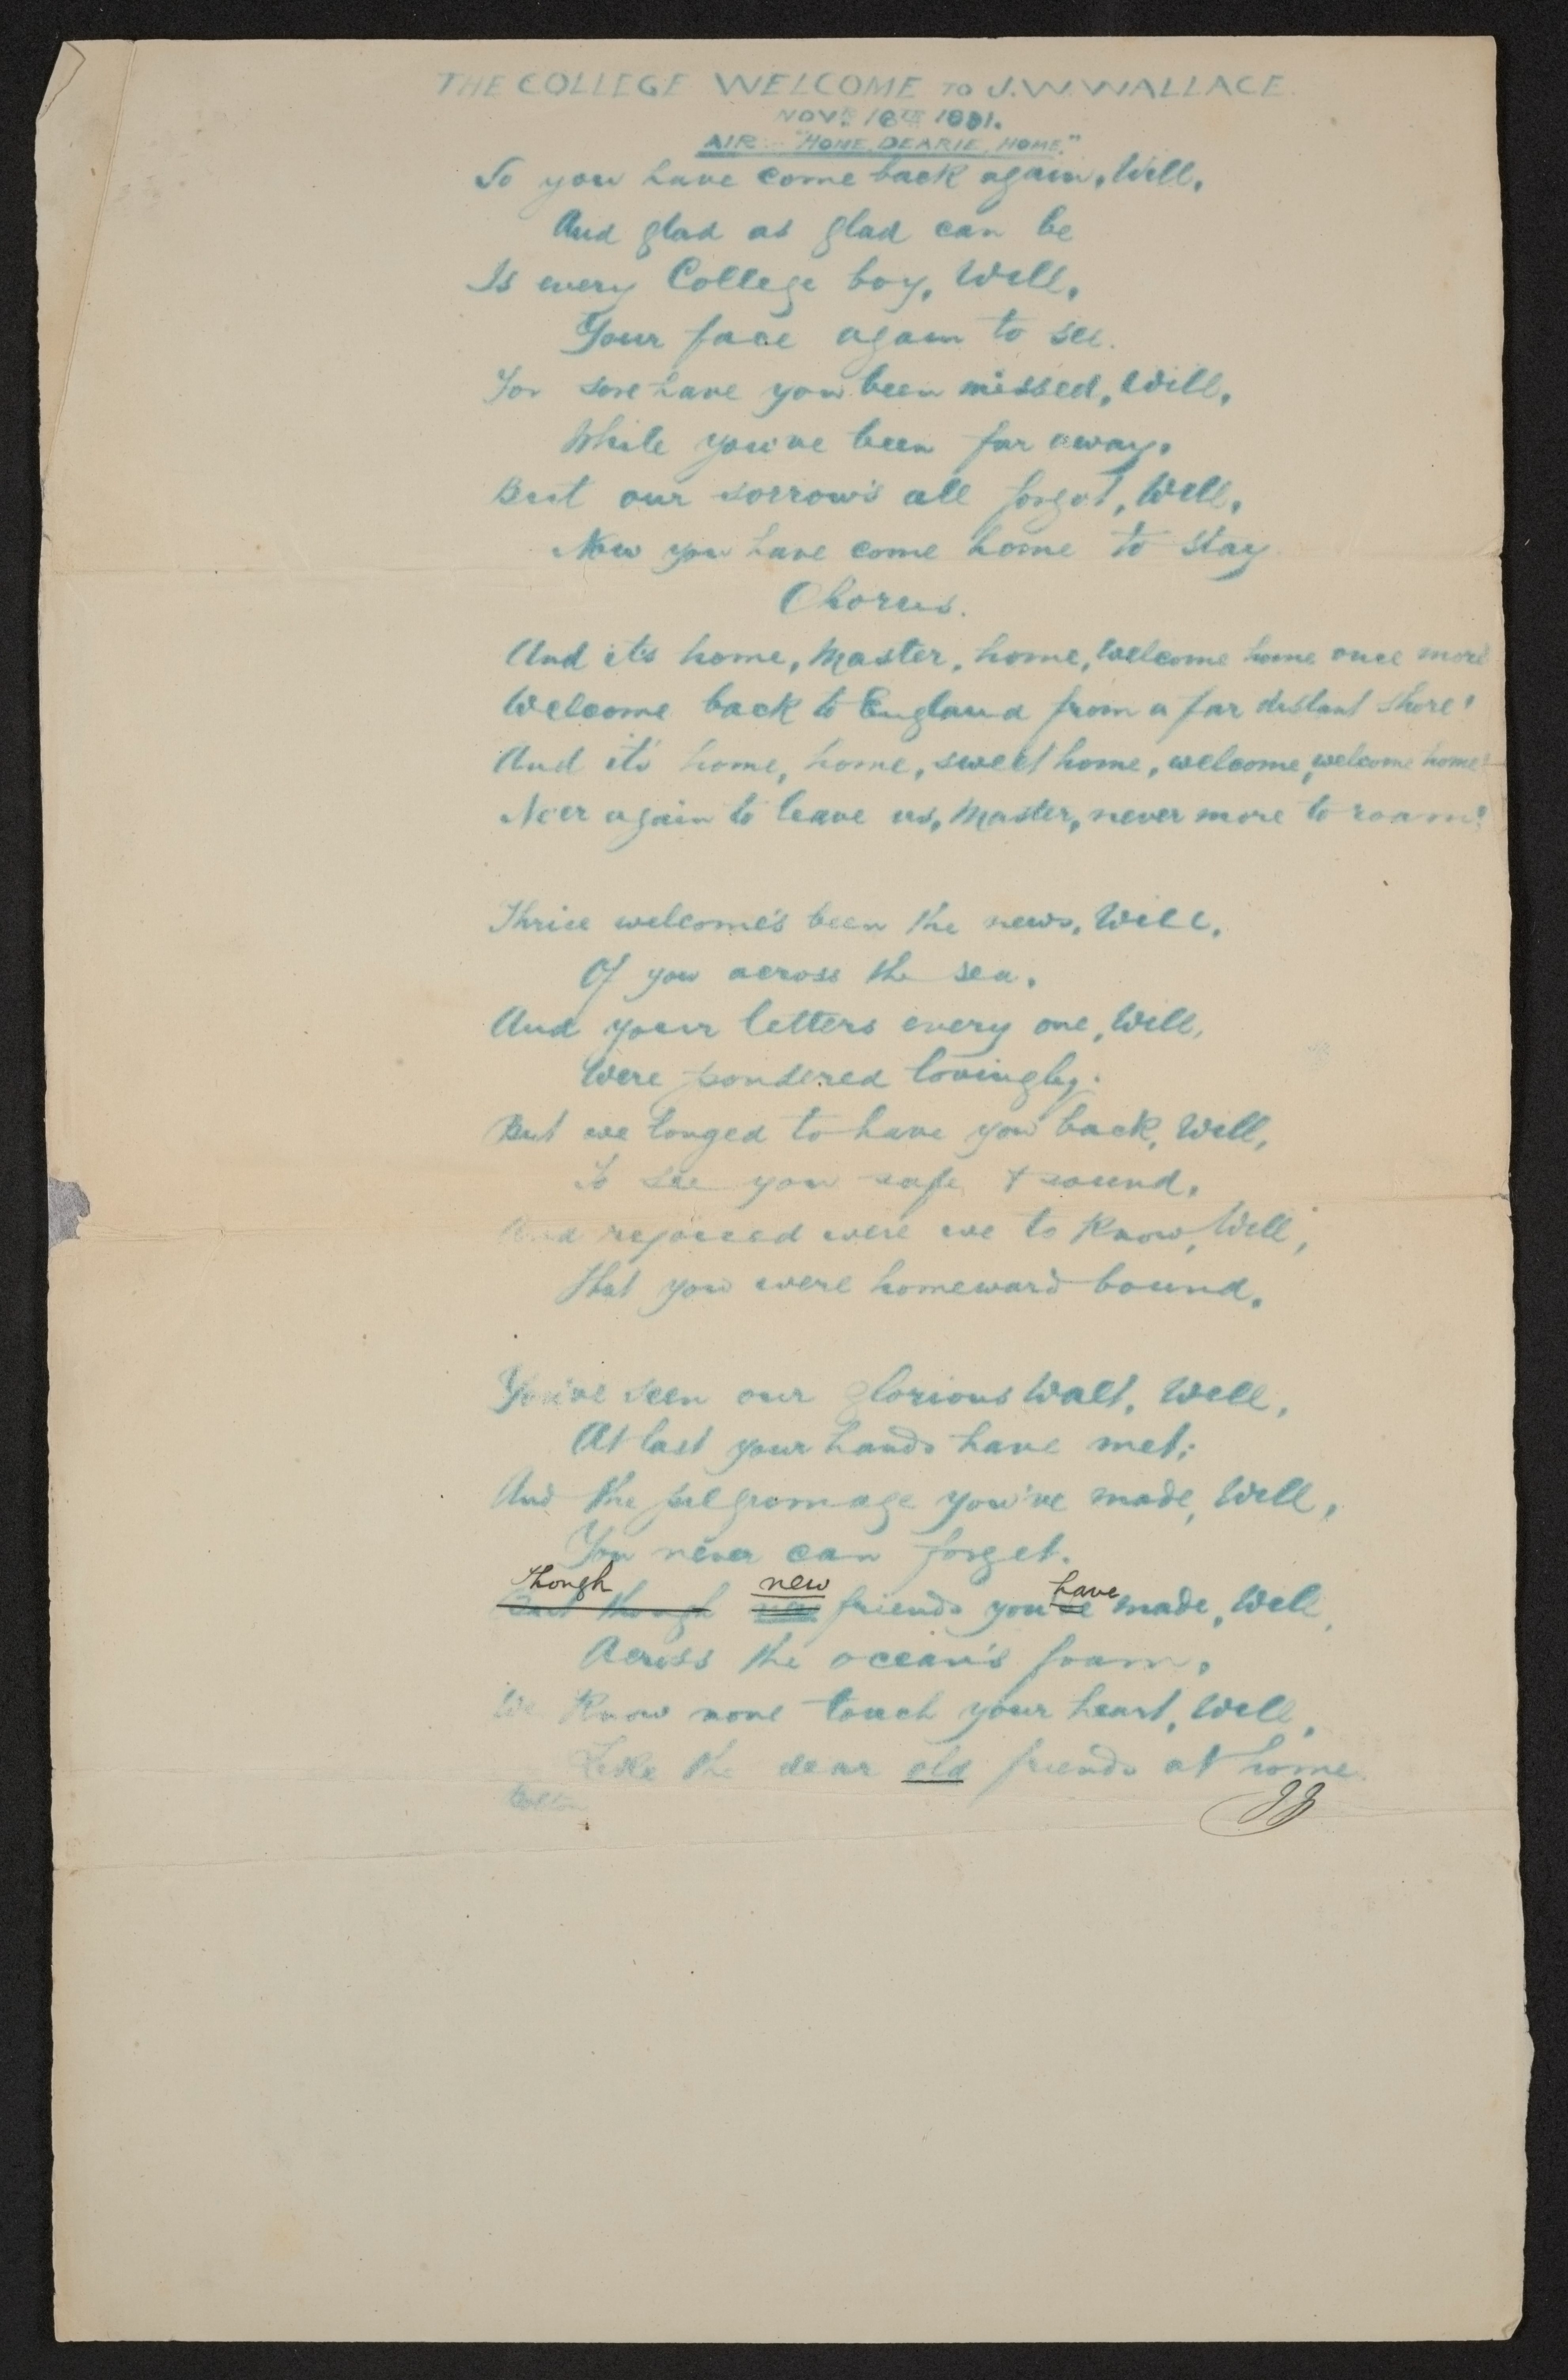 THE COLLEGE WELCOME TO J. W. WALLACE
NOVR 18TH 1891.
AIR:- "HOME, DEARIE, HOME."
So you have come back again, Will,
And glad as glad can be
Is every College boy, Will,
Your face again to see.
For sore have you been missed, Will,
While you've been far away,
But our sorrow's all forgot, Will,
Now you have come home to stay
Chorus.
And it's home, Master, home, welcome home once more
Welcome back to England from a far distant shore!
And it's home, home, sweet home, welcome, welcome home!
Ne'er again to leave us, Master, never more to roam!
Thrice welcome's been the news, Will,
Of you across the sea,
And your letters every one, Will,
Were pondered lovingly.
But we longed to have you back, Will,
To see you safe & sound,
And rejoiced were we to know, Will,
That you were homeward bound.
You've seen our glorious Walt, Will,
At last your hands have met;
And the pilgrimage you've made, Will,
You never can forget.
though new have
But though new friends you've made, Will,
Across the ocean's foam,
We know none touch your heart, Will,
Like the dear old friends at home
Bolton
JJ